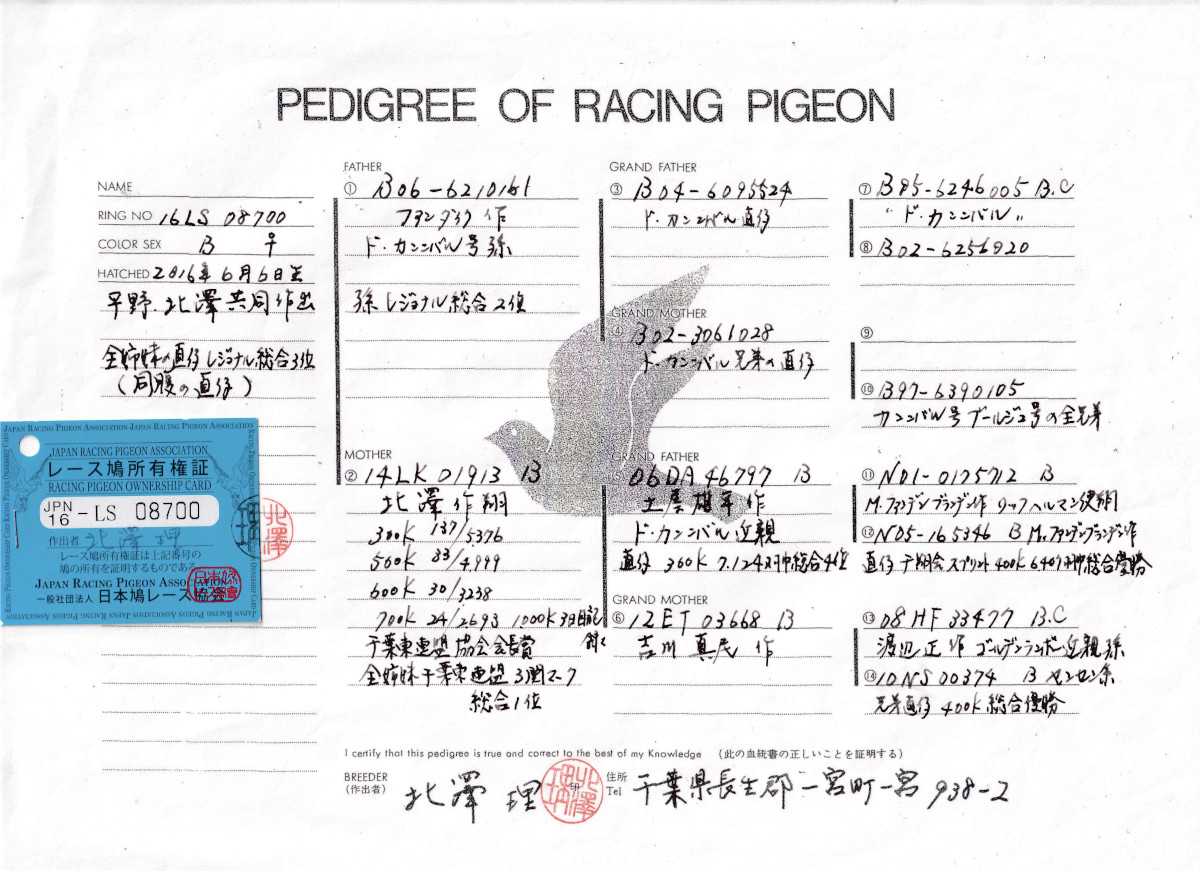 PEDIGREE OF RACING PIGEON
NAME
RING NO 16LS 08700
COLOR SEX B ♀
HATCHED 2016年6月6日生
平野.北澤共同作出
全姉妹の直仔レジョナル総合3位
(同腹の直仔)
JAPAN RACING PIGEON ASSOCIATION JAPAN RACING PIGEON ASSOCIATION
JAPAN RACING PIGEON ASSOCIATION
レース鳩所有権証
RACING PIGEON OWNERSHIP CARD
JPN
16 -LS 08700
作出者 北澤理
レース鳩所有権証は上記番号の
鳩の所有を証明するものである
JAPAN RACING PIGEON ASSOCIATION
一般社団法人 日本鳩レース協会
北澤
FATHER
① B06-6210161
ファンダイク作
ド・カンニバル号孫
孫レジョナル総合2位
MOTHER
② 14LK 01913 B
北澤作翔
300K 137/5376
500K 33/4,999
600K 30/3238
700K 24/2693 1000K 3日目記録
千葉東連盟協会会長賞
全姉妹千葉東連盟3関マーク
総合1位
GRAND FATHER
③ B04-6095524
ド・カンニバル直仔
GRAND MOTHER
④ B02-3061028
ド・カンニバル兄弟の直仔
GRAND FATHER
06DA 46797 B
作
ド・カンニバル近親
直仔 360K 7.124羽中総合4位
GRAND MOTHER
⑥ 12ET 03668 B
吉川真民作
⑦ B95-6246005 B.C
"ド・カンニバル"
⑧ B02-6256920
⑨
⑩ B97-6390105
カンニバル号ブールジュ号の全兄弟
⑪ N01-0175712 B
M.ファンデンブランデン作 リックヘルマン使翔
⑫ N05-165346 B M.ファンデンブランデン作
直仔千翔会スプリント400K 640羽中総合優勝
⑬ 08HF 33477 B.C
渡辺正作 ゴールデンランボー近親孫
⑭ 10NS 00374 B センセン系
兄弟直仔 400K 総合優勝
I certify that this pedigree is true and correct to the best of my Knowledge (此の血統書の正しいことを証明する)
BREEDER
(作出者) 北澤 理 印
住所
Tel 千葉県長生郡一宮町一宮938-2